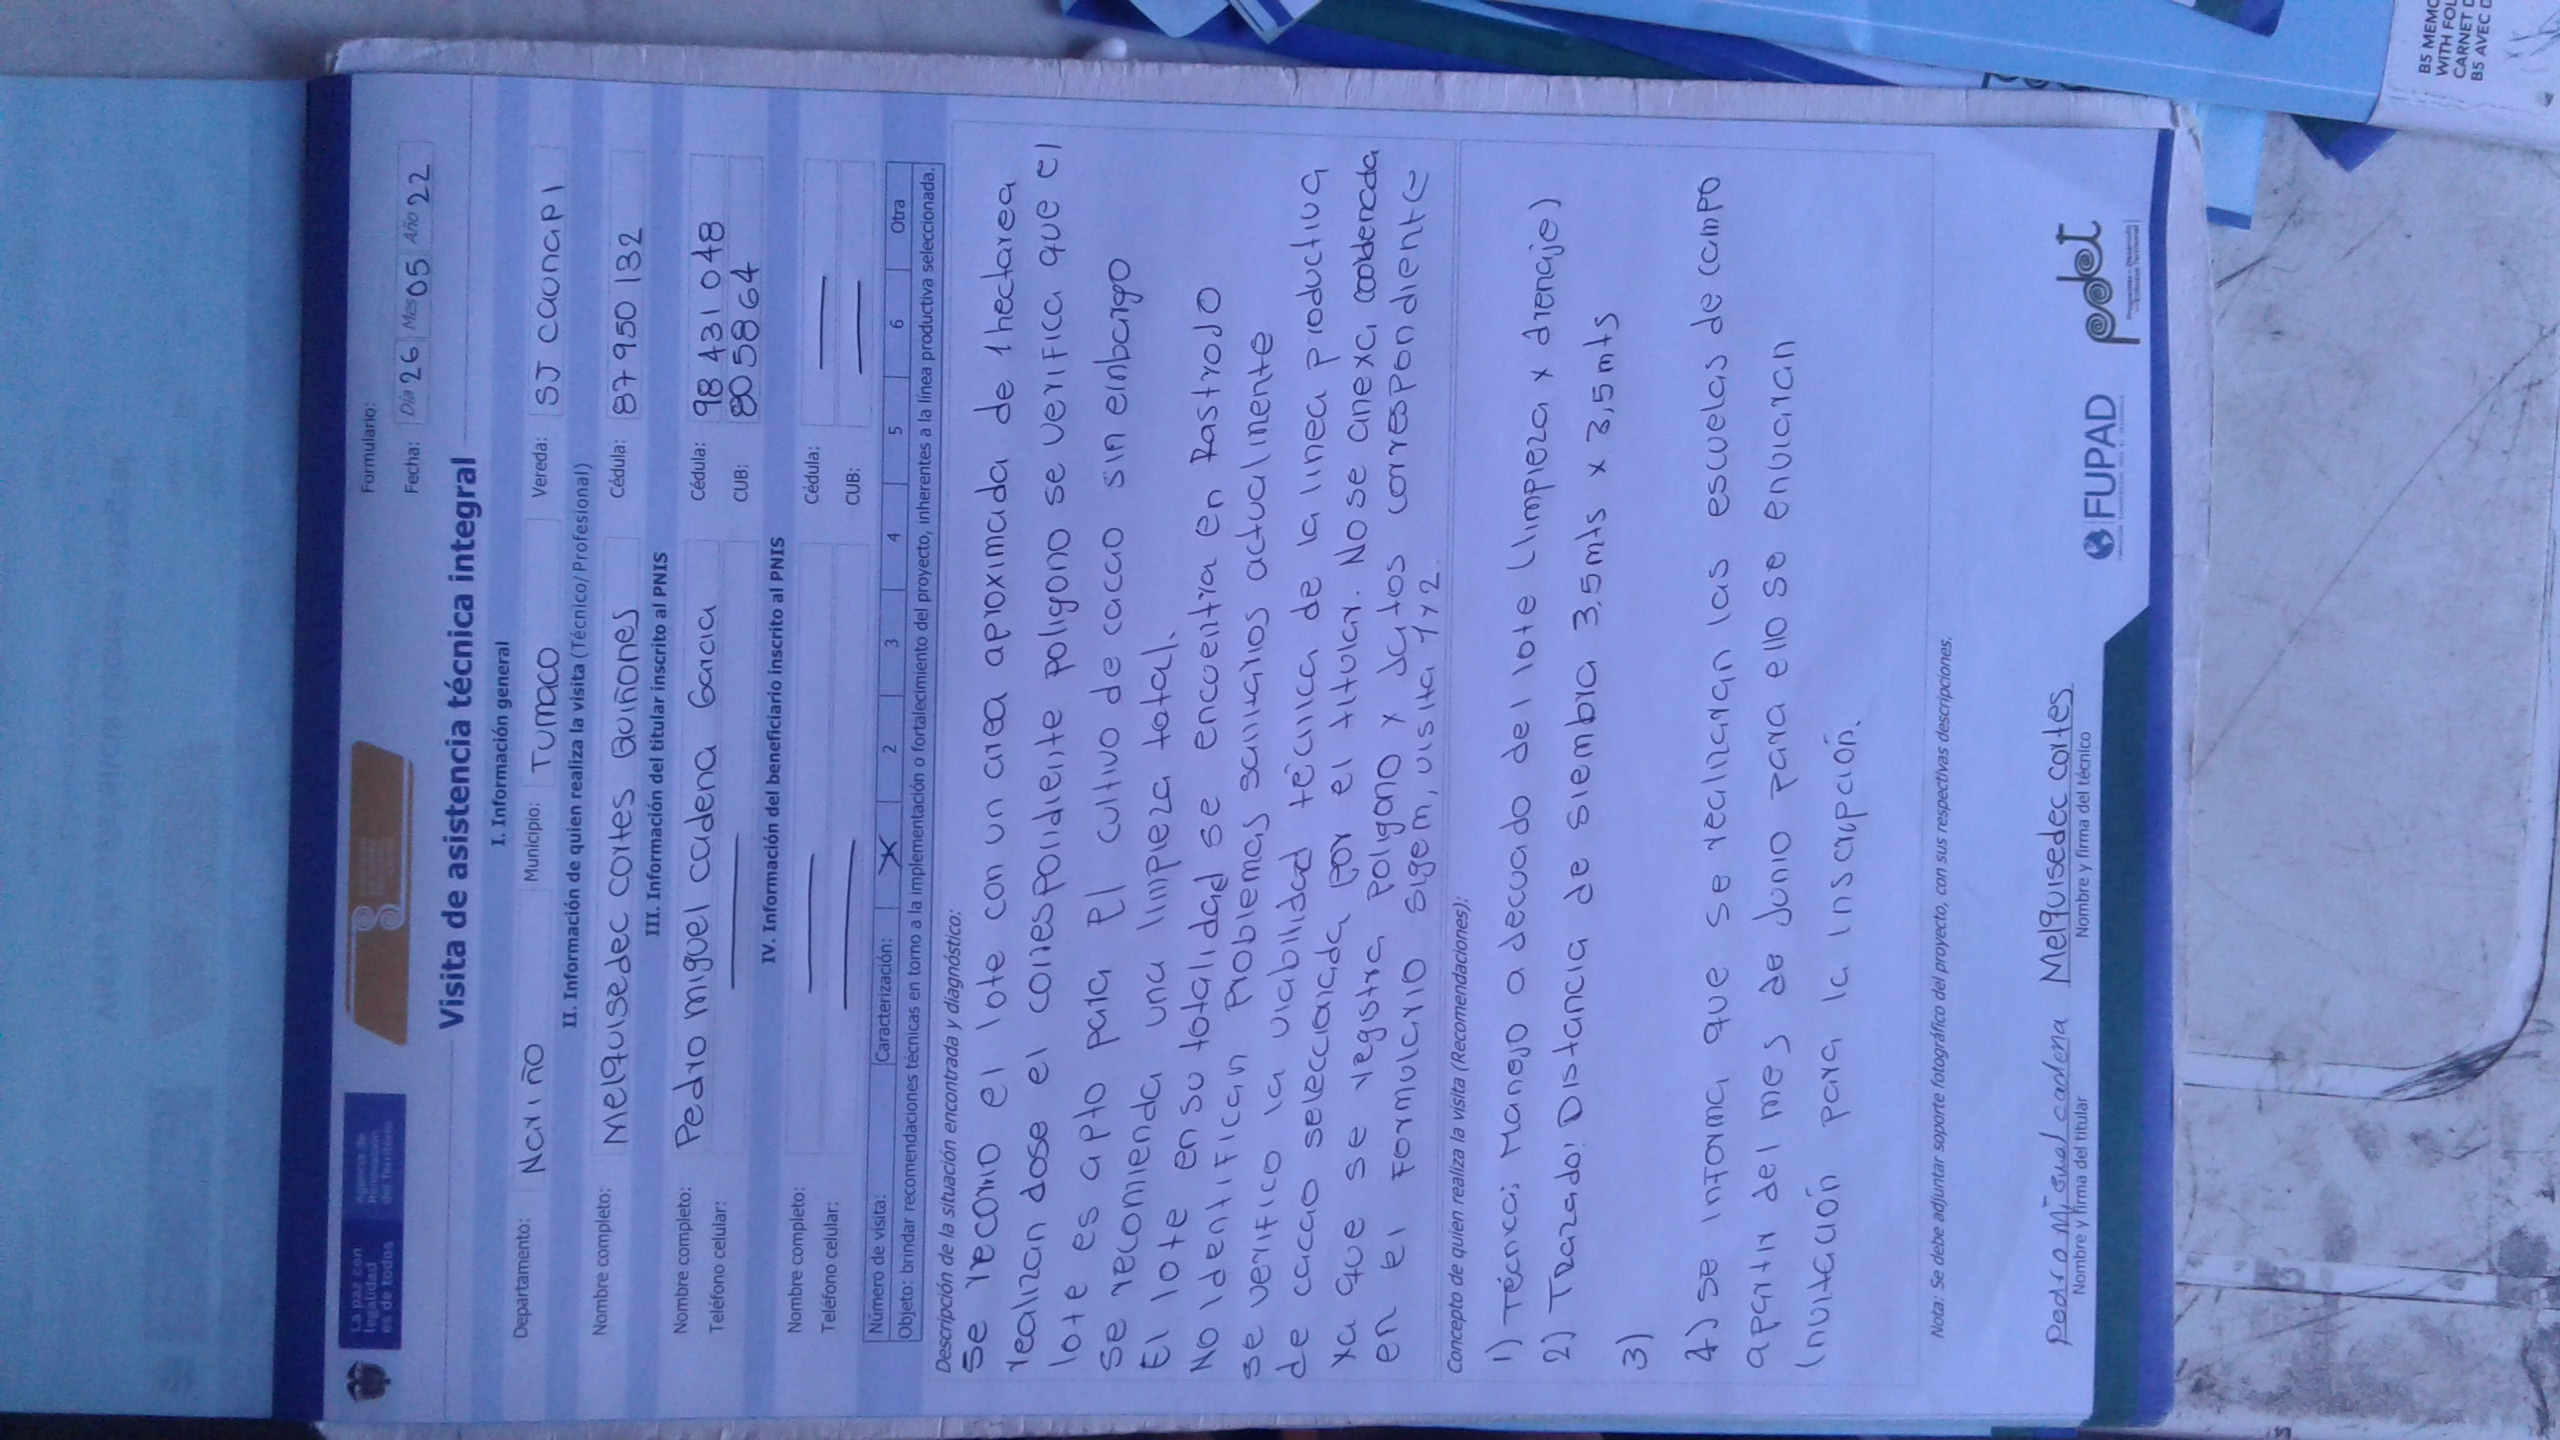 La paz con
legalidad
es de todos
Agencia de
Renovación
del Territorio
Formulario:
Fecha: Día 26 Mes 05 Año 22
Visita de asistencia técnica integral
I. Información general
Departamento: Nariño Municipio: Tumaco Vereda: SJ caunapi
II. Información de quien realiza la visita (Técnico/Profesional)
Nombre completo: Melquisedec cortes Quiñones Cédula: 87950132
III. Información del titular inscrito al PNIS
Nombre completo: Pedro miguel cadena Gacia Cédula: 98431048
Teléfono celular: — CUB: 805864
IV. Información del beneficiario inscrito al PNIS
Nombre completo: — Cédula: —
Teléfono celular: — CUB: —
Número de visita: Caracterización: X 2 3 4 5 6 Otra
Objeto: brindar recomendaciones técnicas en torno a la implementación o fortalecimiento del proyecto, inherentes a la línea productiva seleccionada.
Descripción de la situación encontrada y diagnóstico:
Se recorrio el lote con un area aproximada de 1 hectarea
realizan dose el correspondiente poligono se verifica que el
lote es apto para El cultivo de cacao sin einbargo
Se recomienda una limpieza total.
El lote en su totalidad se encuentra en Rastrojo
No Identifican Problemas sanitarios actualmente
se verifico la viabilidad técnica de la linea productiva
de cacao seleccionada por el titular. No se anexa coordenada
ya que se registra poligono y datos correspondiente
en el formulario sigem, visita 1 y 2.
Concepto de quien realiza la visita (Recomendaciones):
1) Técnica: Manejo adecuado del lote (limpieza y drenaje)
2) Trazado: Distancia de siembra 3,5mts x 3,5mts
3)
4) se informa que se realizaran las escuelas de campo
apartir del mes de Junio para ello se enviaran
Invitación para la inscripción.
Nota: Se debe adjuntar soporte fotográfico del proyecto, con sus respectivas descripciones.
pedro Miguel cadena Melquisedec cortes
Nombre y firma del titular Nombre y firma del técnico
FUPAD
pdet
B5 MEMO
WITH FOL
CARNET D
B5 AVEC D